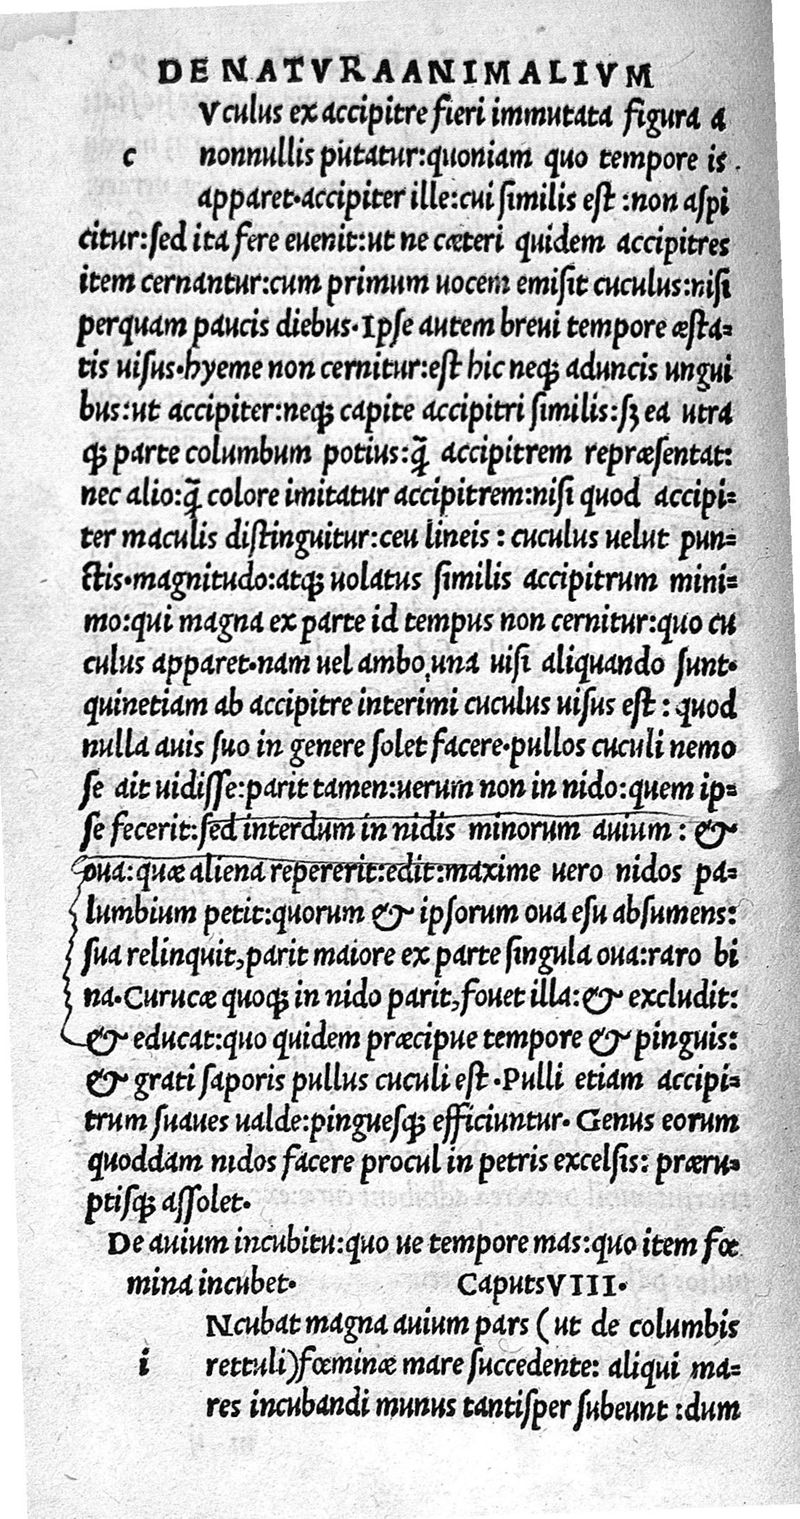 DE NATVRA ANIMALIVM
Vculus ex accipitre fieri immutata figura a
c nonnullis putatur:quoniam quo tempore is
apparet·accipiter ille:cui ſimilis eſt :non aſpi
citur:ſed ita fere euenit:ut ne cæteri quidem accipitres
item cernantur:cum primum uocem emiſit cuculus:niſi
perquam paucis diebus·Ipſe autem breui tempore æſta=
tis uiſus·hyeme non cernitur:eſt hic neqꝫ aduncis ungui
bus:ut accipiter:neqꝫ capite accipitri ſimilis:ſꝫ ea utra
qꝫ parte columbum potius:q̃ accipitrem repræſentat:
nec alio:q̃ colore imitatur accipitrem:niſi quod accipi=
ter maculis diſtinguitur:ceu lineis : cuculus uelut pun=
ctis·magnitudo:atqꝫ uolatus ſimilis accipitrum mini=
mo:qui magna ex parte id tempus non cernitur:quo cu
culus apparet·nam uel ambo una uiſi aliquando ſunt·
quinetiam ab accipitre interimi cuculus uiſus eſt : quod
nulla auis ſuo in genere ſolet facere·pullos cuculi nemo
ſe ait uidiſſe:parit tamen:uerum non in nido:quem ip=
ſe fecerit:ſed interdum in nidis minorum auium : &
oua:quæ aliena repererit:edit:maxime uero nidos pa=
lumbium petit:quorum & ipſorum oua eſu abſumens:
ſua relinquit,parit maiore ex parte ſingula oua:raro bi
na·Curucæ quoqꝫ in nido parit,fouet illa:& excludit:
& educat:quo quidem præcipue tempore & pinguis:
& grati ſaporis pullus cuculi eſt ·Pulli etiam accipi=
trum ſuaues ualde:pingueſqꝫ efficiuntur· Genus eorum
quoddam nidos facere procul in petris excelſis: præru=
ptiſqꝫ aſſolet·
De auium incubitu:quo ue tempore mas:quo item fœ
mina incubet· Caputs VIII·
Ncubat magna auium pars (ut de columbis
i rettuli)fœminæ mare ſuccedente: aliqui ma=
res incubandi munus tantiſper ſubeunt :dum